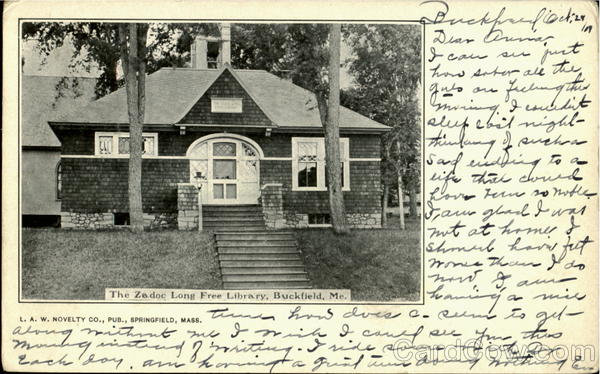 Buckfield Oct. 24
Dear Annie,
I can see just
how sober all the
girls are feeling this
morning I couldn't
sleep last night
thinking of such a
sad ending to a
life that could
have been so noble.
I am glad I was
not at home I
should have felt
worse than I do
now. I am
having a nice
time how does C. seem to get
along without me I wish I could see you this
morning instead of writing. I ride
each day. am having a great time doing nothing
The Zadoc Long Free Library, Buckfield, Me.
L. A. W. NOVELTY CO., PUB., SPRINGFIELD, MASS.
CardCow.com